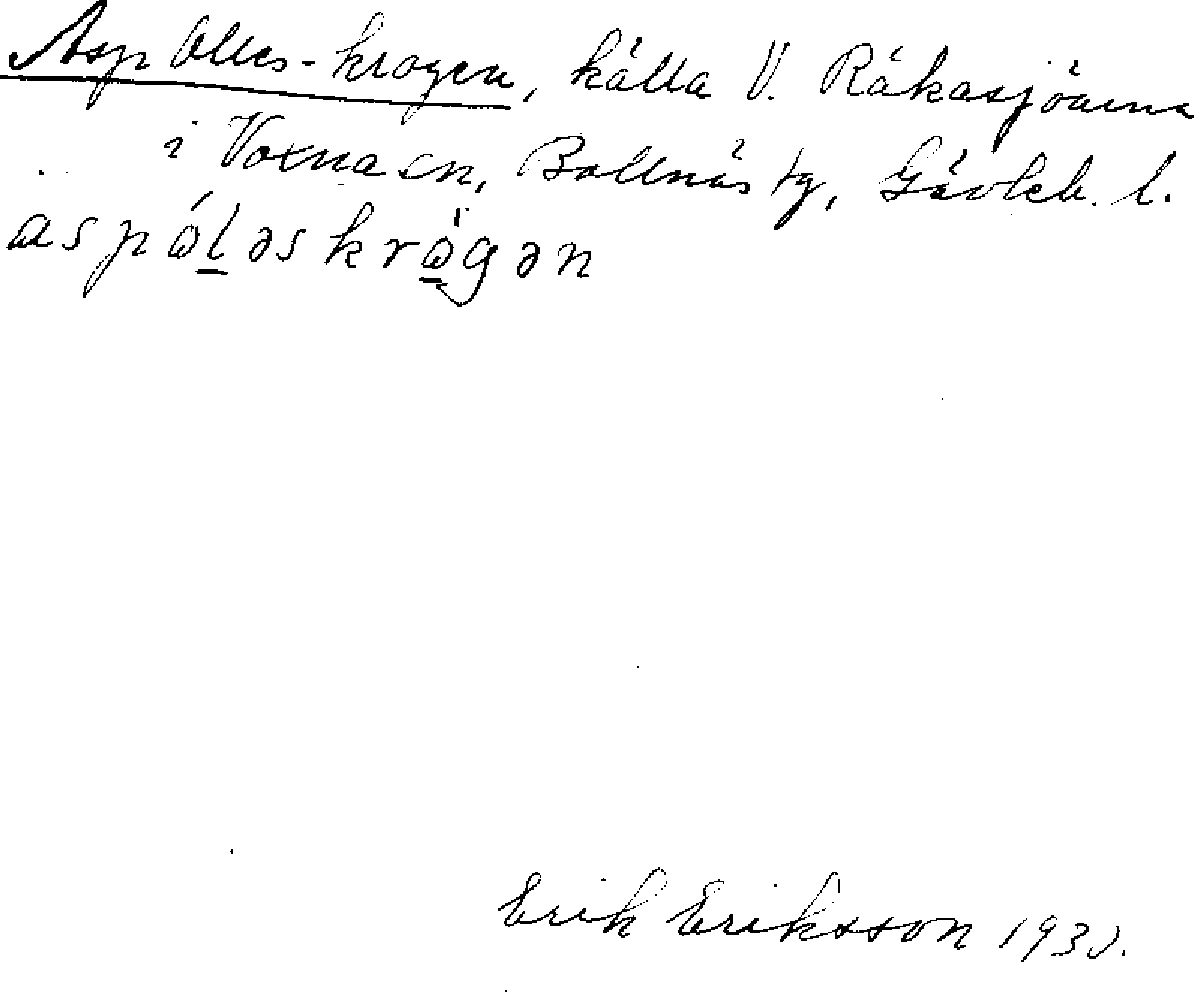 Asp Olles-krogen, källa V. Råkasjöarna
i Voxna sn, Bollnäs tg, Gävleb. l.
aspóləskrögən
Erik Eriksson